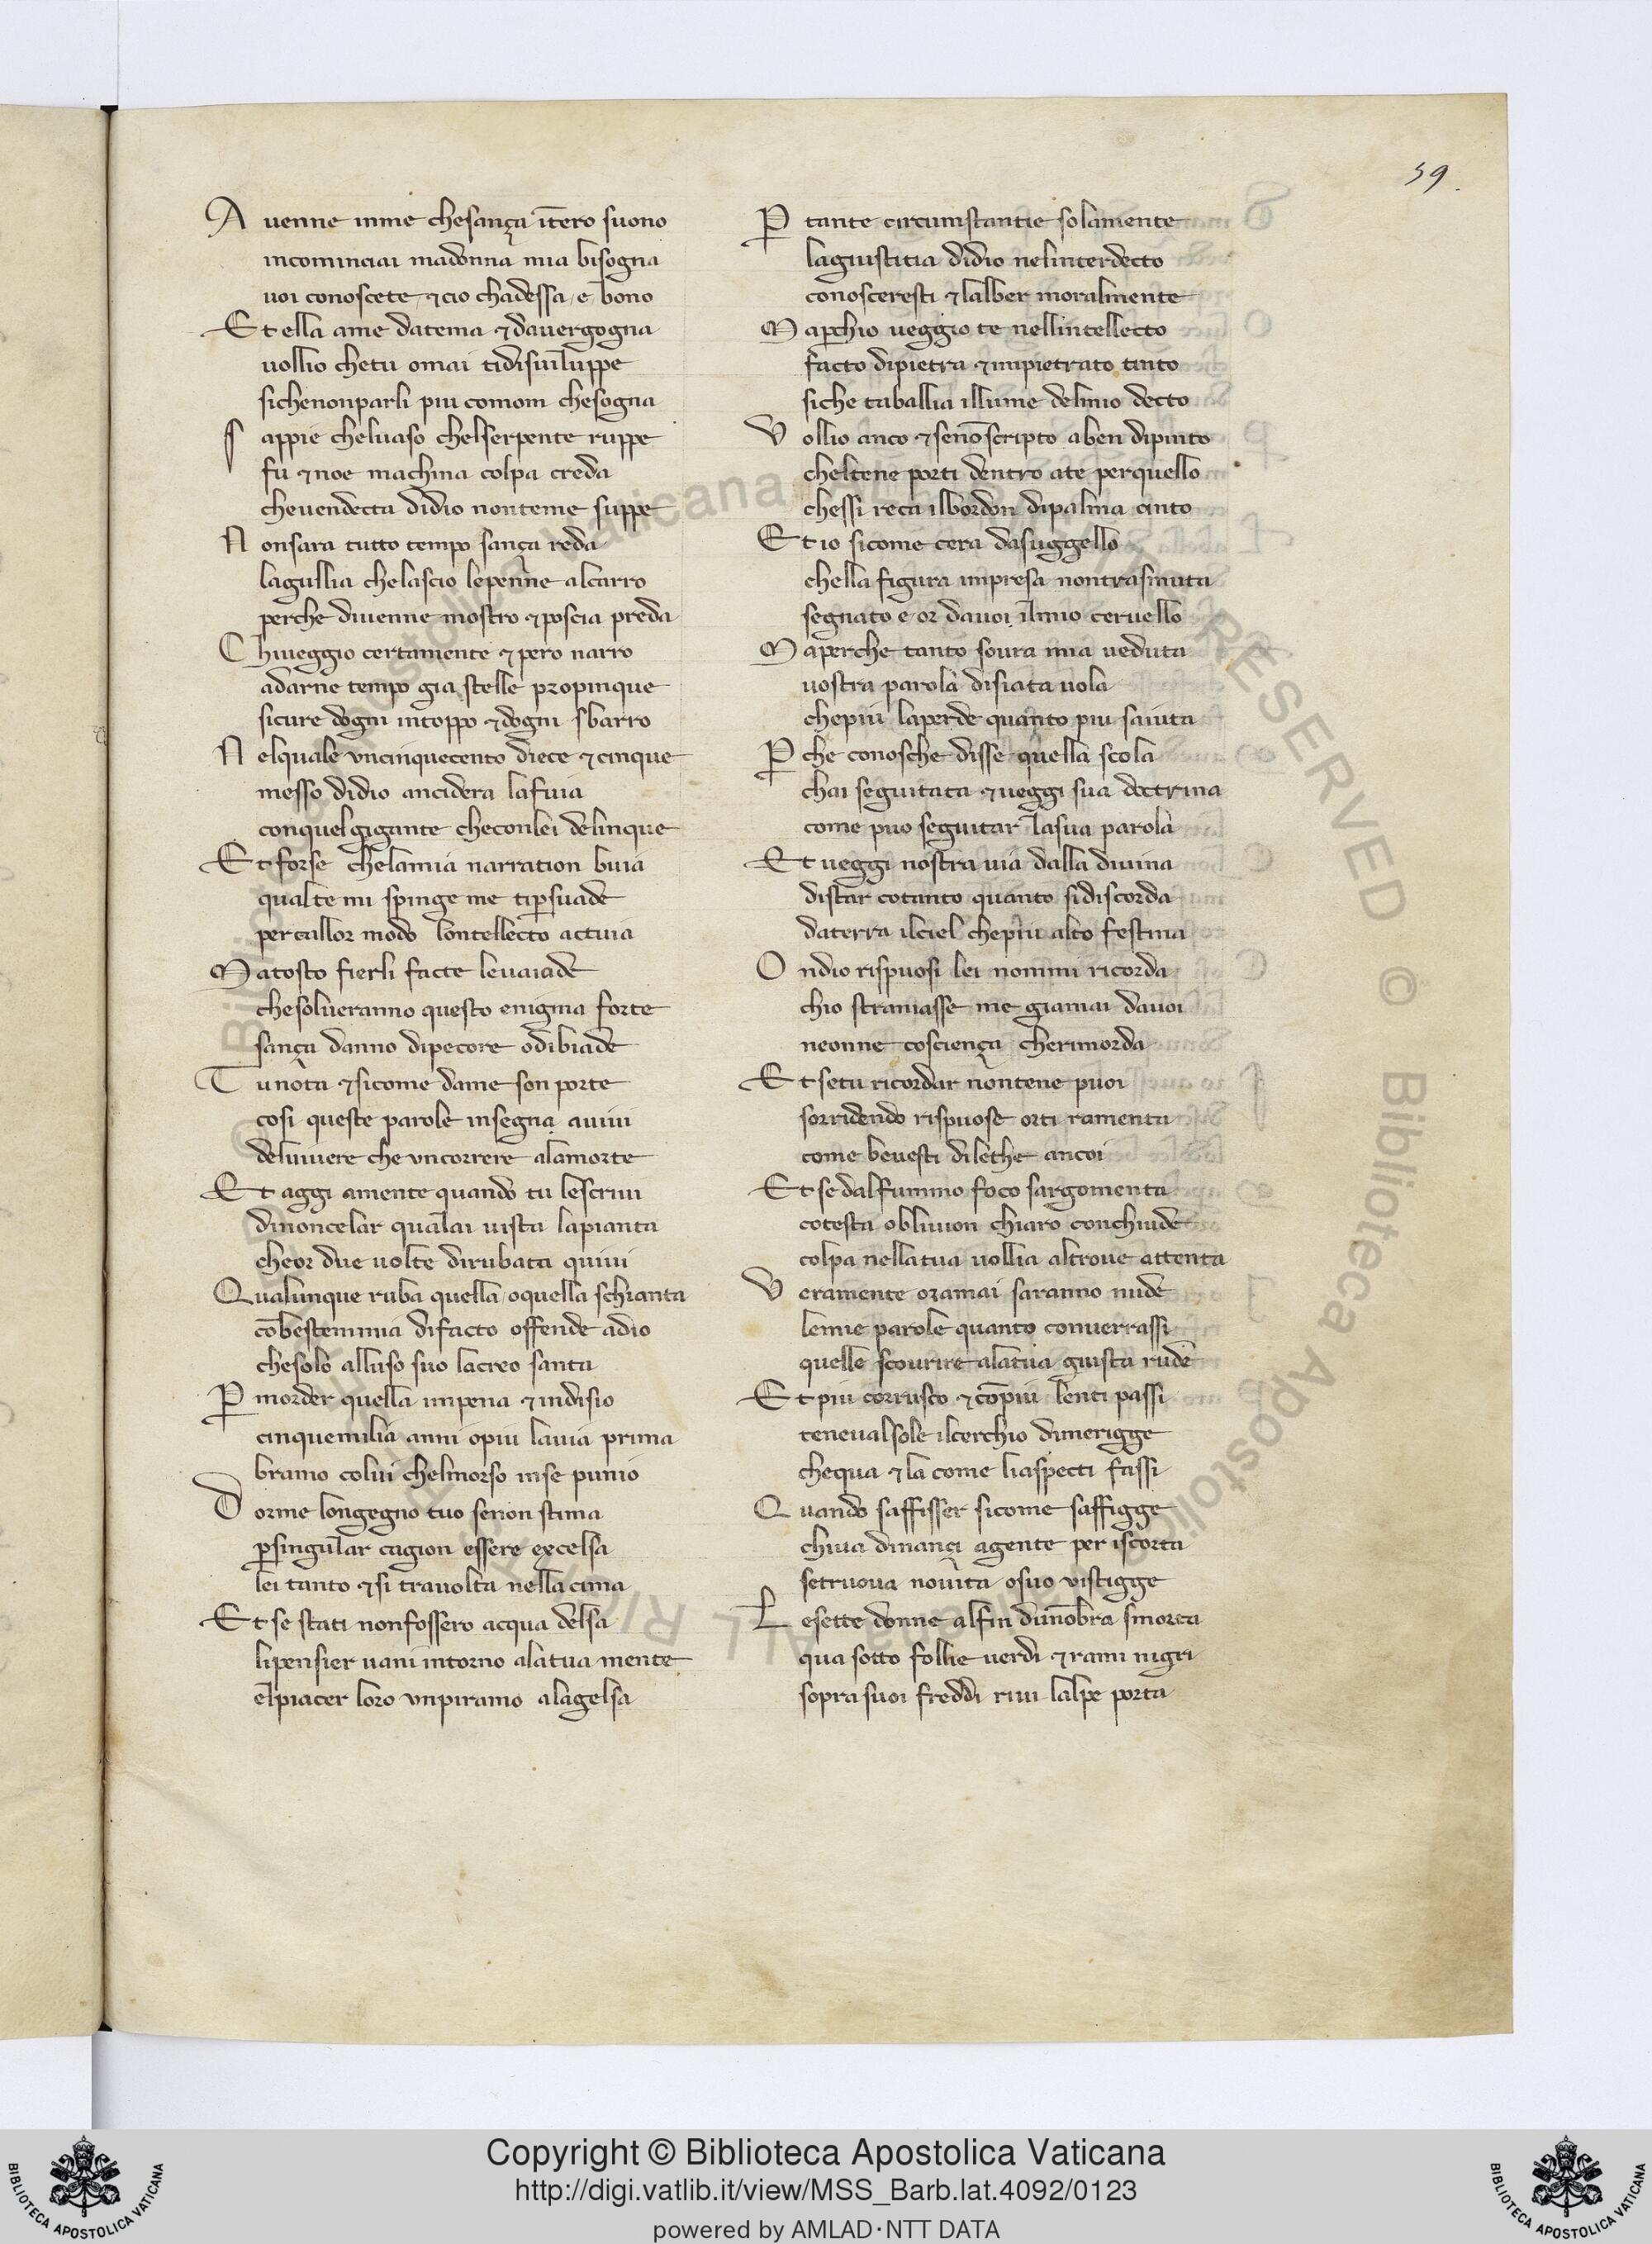 59.
A uenne inme chesança ĩtero suono
incominciai madonna mia bisogna
uoi conoscete ⁊cio chadessa e bono
Et ella ame datema ⁊dauergogna
uollio chetu omai tidisuiluppe
sichenonparli piu comom chesogna
S appie cheluaso chelserpente ruppe
fu ⁊noe machina colpa creda
cheuendecta didio nonteme suppe
N onsara tutto tempo sança reda
lagullia chelascio lepenne alcarro
perche diuenne mostro ⁊poscia preda
C hiueggio certamente ⁊ pero narro
adarne tempo gia stelle propinque
sicure dogni intoppo ⁊dogni sbarro
N elquale vncinquecento diece ⁊cinque
messo didio anciderà lafuia
conquel gigante checonlei delinque
Et forse chelamia narration buia
qualte mi spinge me tip̱suade
pertallor modo lontellecto actuia
M atosto fierli facte leuaiade
chesolueranno questo enigma forte
sança danno dipecore odibiade
T u nota ⁊sicome dame son porte
cosi queste parole insegna auiui
deluiuere che vncorrere alamorte
Et aggi amente quando tu lescriui
dinoncelar qualai uista lapianta
cheor due uolte dirubata quiui
Qualunque ruba quella oquella schianta
cõbestemmia difacto offende adio
chesolo alluso suo lacreo santa
P̱ morder quella inpena ⁊indisio
cinquemilia anni opiu lauia prima
bramo colui chelmorso inse punio
D orme longegno tuo senon stima
p̱singular cagion essere excelsa
lei tanto ⁊si trauolta nellacima
Et se stati nonfossero acqua delsa
lipensier uani intorno alatua mente
elpiacer loro vnpiramo alagelsa
P̱ tante circumstantie solamente
lagiustitia didio nelinterdecto
conosceresti ⁊lalber moralmente
M ap̱chio ueggio te nellintellecto
facto dipietra ⁊impietrato tinto
siche tabballia illume delmio decto
V ollio anco ⁊senõscripto aben dipinto
cheltene porti dentro ate perquello
chessi reca ilbordon dipalma cinto
Et io sicome cera dasuggello
chella figura impresa nontrasmuta
segnato e or dauoi ilmio ceruello
M aperche tanto soura mia ueduta
uostra parola disiata uola
chepiu laperde quanto piu saiuta
P̱ che conosche disse quella scola
chai seguitata ⁊ueggi sua doctrina
come puo seguitar lasua parola
Et ueggi uostra uia dalla diuina
distar cotanto quanto sidiscorda
daterra ilciel chepiu alto festina
O ndio rispuosi lei nommi ricorda
chio straniasse me giamai dauoi
neonne coscienza cherimorda
Et setu ricordar nontene puoi
sorridendo rispuose orti ramenta
come beuesti dilethe ancoi
Et se dalfummo foco sargomenta
cotesta obliuion chiaro conchiude
colpa nellatua uollia altroue attenta
V eramente oramai saranno nude
lemie parole quanto conuerrassi
quelle scourire alatua guista rude
Et piu corrusco ⁊cõpiu lenti passi
teneualsole ilcerchio dimerigge
chequa ⁊la come liaspecti fassi
Q uando saffisser sicome saffigge
chiua dinançi agente per iscorta
setruoua nouita osuo vistigge
L esette donne alfin dunõbra smorta
qua sotto follie uerdi ⁊rami nigri
sopra suoi freddi riui lalpe porta
Copyright © Biblioteca Apostolica Vaticana
http://digi.vatlib.it/view/MSS_Barb.lat.4092/0123
powered by AMLAD·NTT DATA
BIBLIOTECA APOSTOLICA VATICANA
BIBLIOTECA APOSTOLICA VATICANA